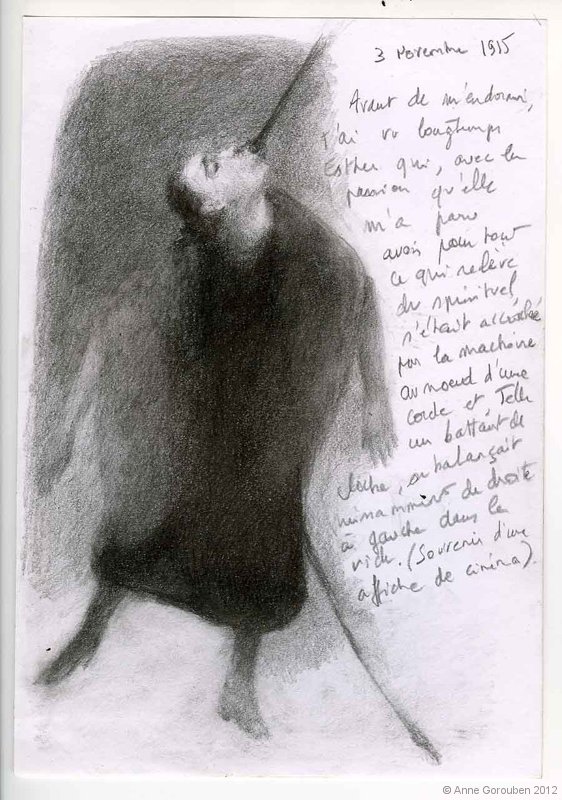 3 Novembre 1915
Avant de m'endormir,
j'ai vu longtemps
Esther qui, avec la
passion qu'elle
m'a paru
avoir pour tout
ce qui relève
du spirituel
s'était accrochée
par la machoire
au noeud d'une
corde et telle
un battant de
cloche, se balançait
puissamment de droite
à gauche dans le
vide. (Souvenir d'une
affiche de cinéma).
© Anne Gorouben 2012